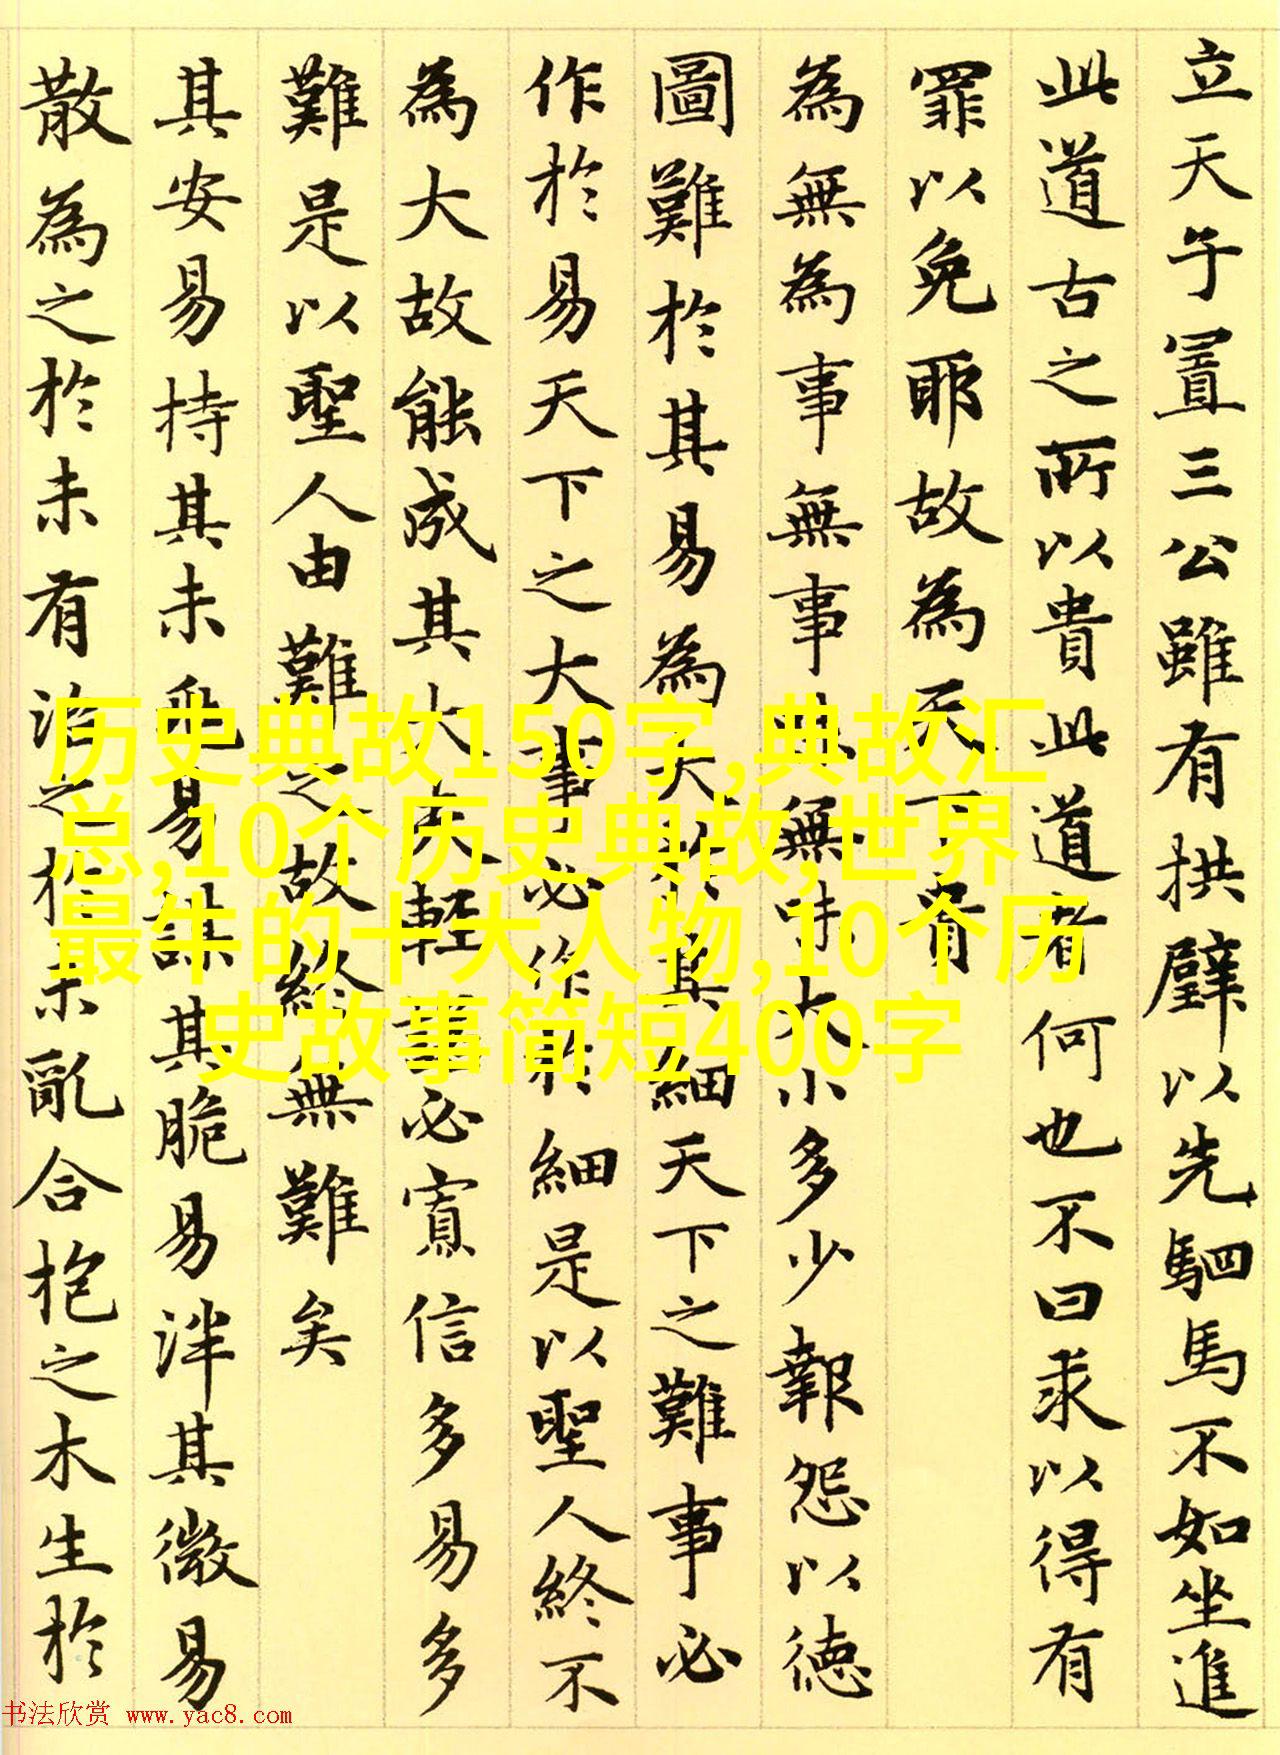 立天子置三公雖有拱璧以先駟馬不如坐進
此道古之所以貴此道者何也不曰求以得有
罪以免耶故為天下貴
為無為事無事味無味大小多少報怨以徳
圖難於其易為大於其細天下之難事必
作於易天下之大事必作於細是以聖人終不
為大故能成其大夫輕諾必寡信多易多
難是以聖人由難之故終無難矣
其安易持其未兆易謀其脆易泮其微易
散為之於未有治之於未亂合抱之木生於
历史典故150字,典故汇
总,10个历史典故,世界
最牛的十大人物,10个历
史故事简短400字
书法欣赏 www.yac8.com